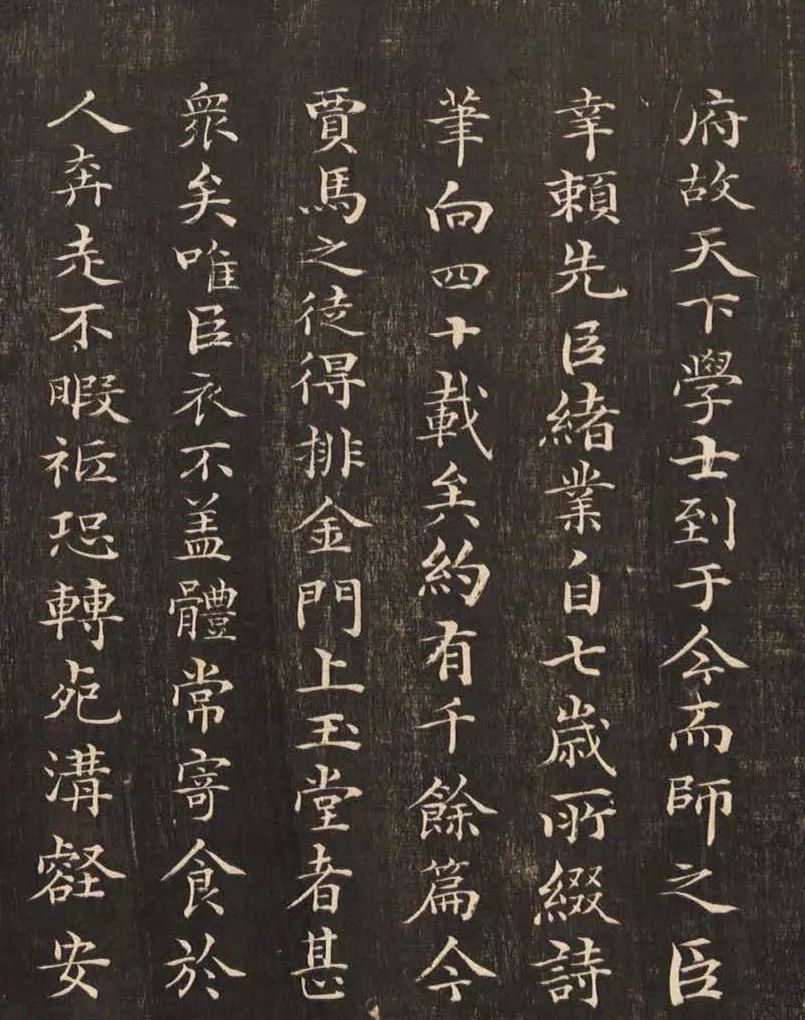 府故天下學士到于今而師之臣
幸頼先臣緒業自七歳所綴詩
筆向四十載矣約有千餘篇今
賈馬之徒得排金門上玉堂者甚
衆矣唯臣衣不盖體常寄食於
人奔走不暇祗恐轉死溝壑安